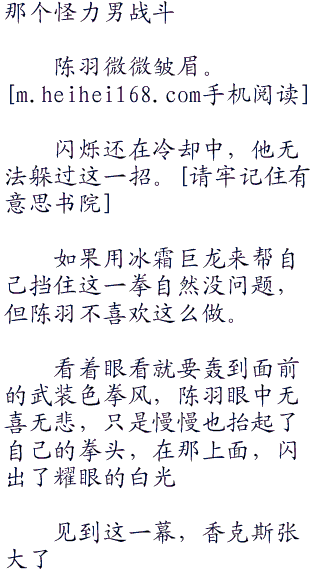 那个怪力男战斗
陈羽微微皱眉。
[m.heihei168.com手机阅读]
闪烁还在冷却中，他无
法躲过这一招。[请牢记住有
意思书院]
如果用冰霜巨龙来帮自
己挡住这一拳自然没问题，
但陈羽不喜欢这么做。
看着眼看就要轰到面前
的武装色拳风，陈羽眼中无
喜无悲，只是慢慢也抬起了
自己的拳头，在那上面，闪
出了耀眼的白光
见到这一幕，香克斯张
大了